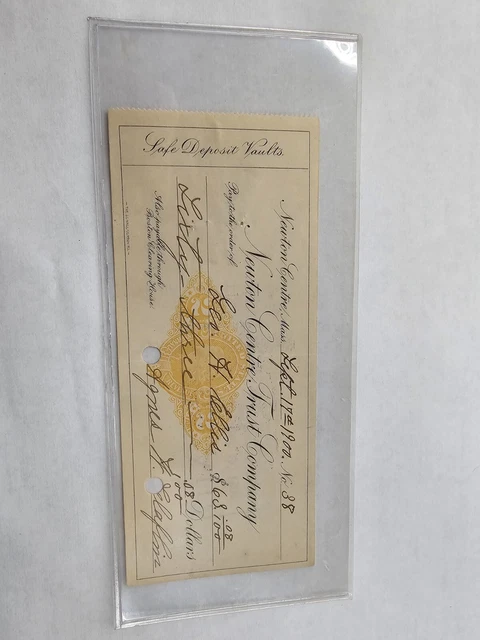 Safe Deposit Vaults.
Newton Centre, Mass. Sept. 17th 1900. No. 38
Newton Centre Trust Company
Pay to the order of
Geo. H. Ellis $63.08/100
Sixty three 08/100 Dollars
Also payable through
Boston Clearing House.
Agnes F. Claflin